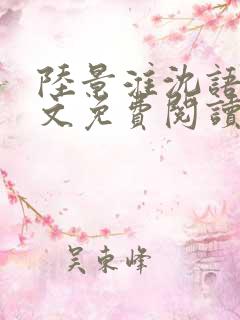 陸景淮沈語
文免費閱讀
吴東峰